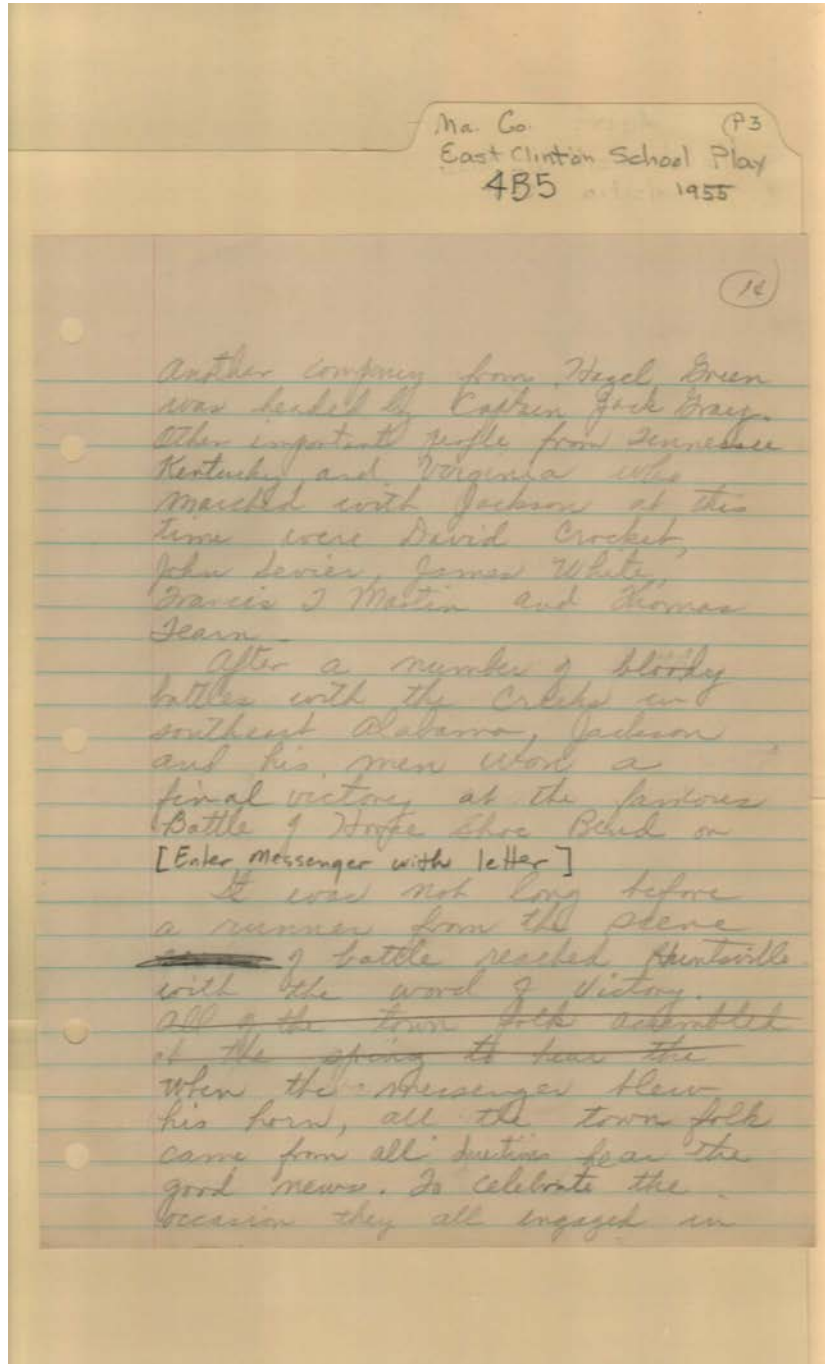 Ma. Co. P3
East Clinton School Play
4B5 1955
14
Another company from Hazel Green
was headed by Captain Jack Gray.
Other important people from Tennessee
Kentucky and Virginia who
marched with Jackson at this
time were David Crocket,
John Sevier, James White,
Francis T Martin and Thomas
Fearn
After a number of bloody
battles with the Creeks in
southeast Alabama, Jackson
and his men won a
final victory at the famous
Battle of Horse Shoe Bend on
[Enter Messenger with letter]
It was not long before
a runner from the scene
of battle reached Huntsville
with the word of Victory.
All of the town folk assembled
at the spring to hear the
When the messenger blew
his horn, all the town folk
came from all directions hear the
good news. To celebrate the
occasion they all engaged in